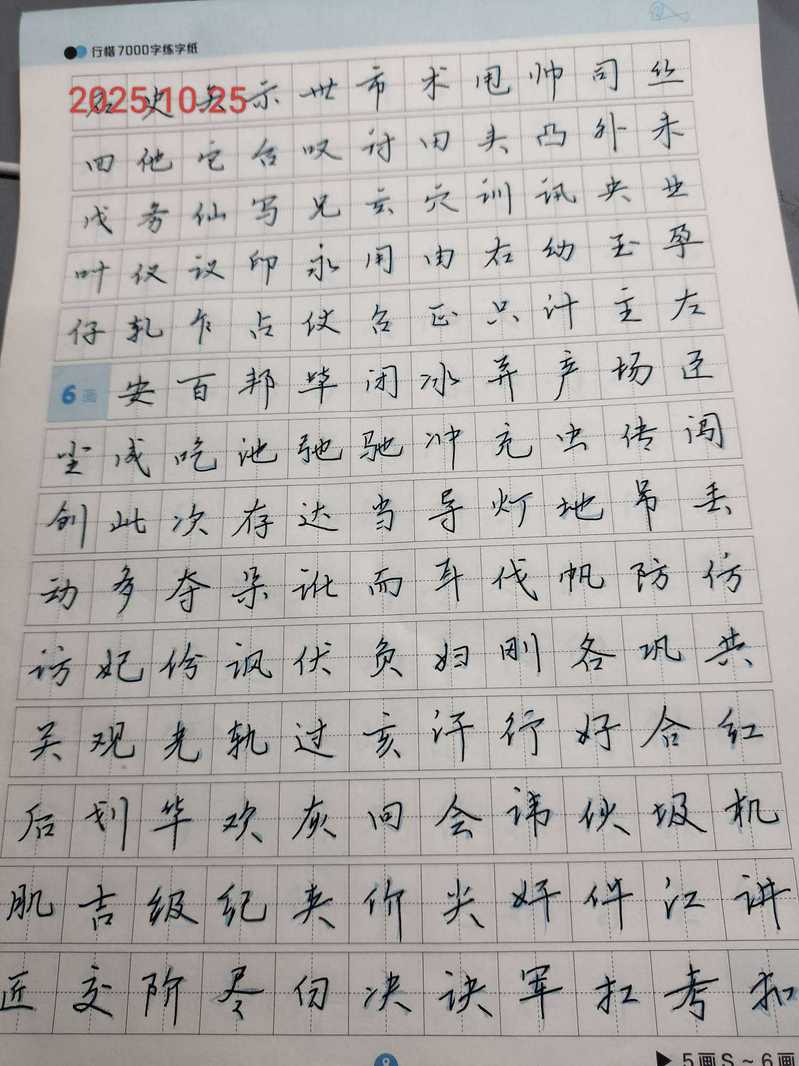 行楷7000字练字纸
2025.10.25
石史矢示世市术甩帅司丝
四他它台叹讨田头凸外未
戊务仙写兄玄穴训讯央业
叶仪议印永用由右幼玉孕
仔轧乍占仗召正只汁主左
6画
安百邦毕闭冰并产场臣
尘成吃池弛驰冲充虫传闯
创此次存达当导灯地吊丢
动多夺朵讹而耳伐帆防仿
访妃份讽伏负妇刚各巩共
关观光轨过亥汗行好合红
后划华欢灰回会讳伙圾机
肌吉级纪夹价尖奸件江讲
匠交阶尽臼决诀军扛考扣
8
▶5画S～6画